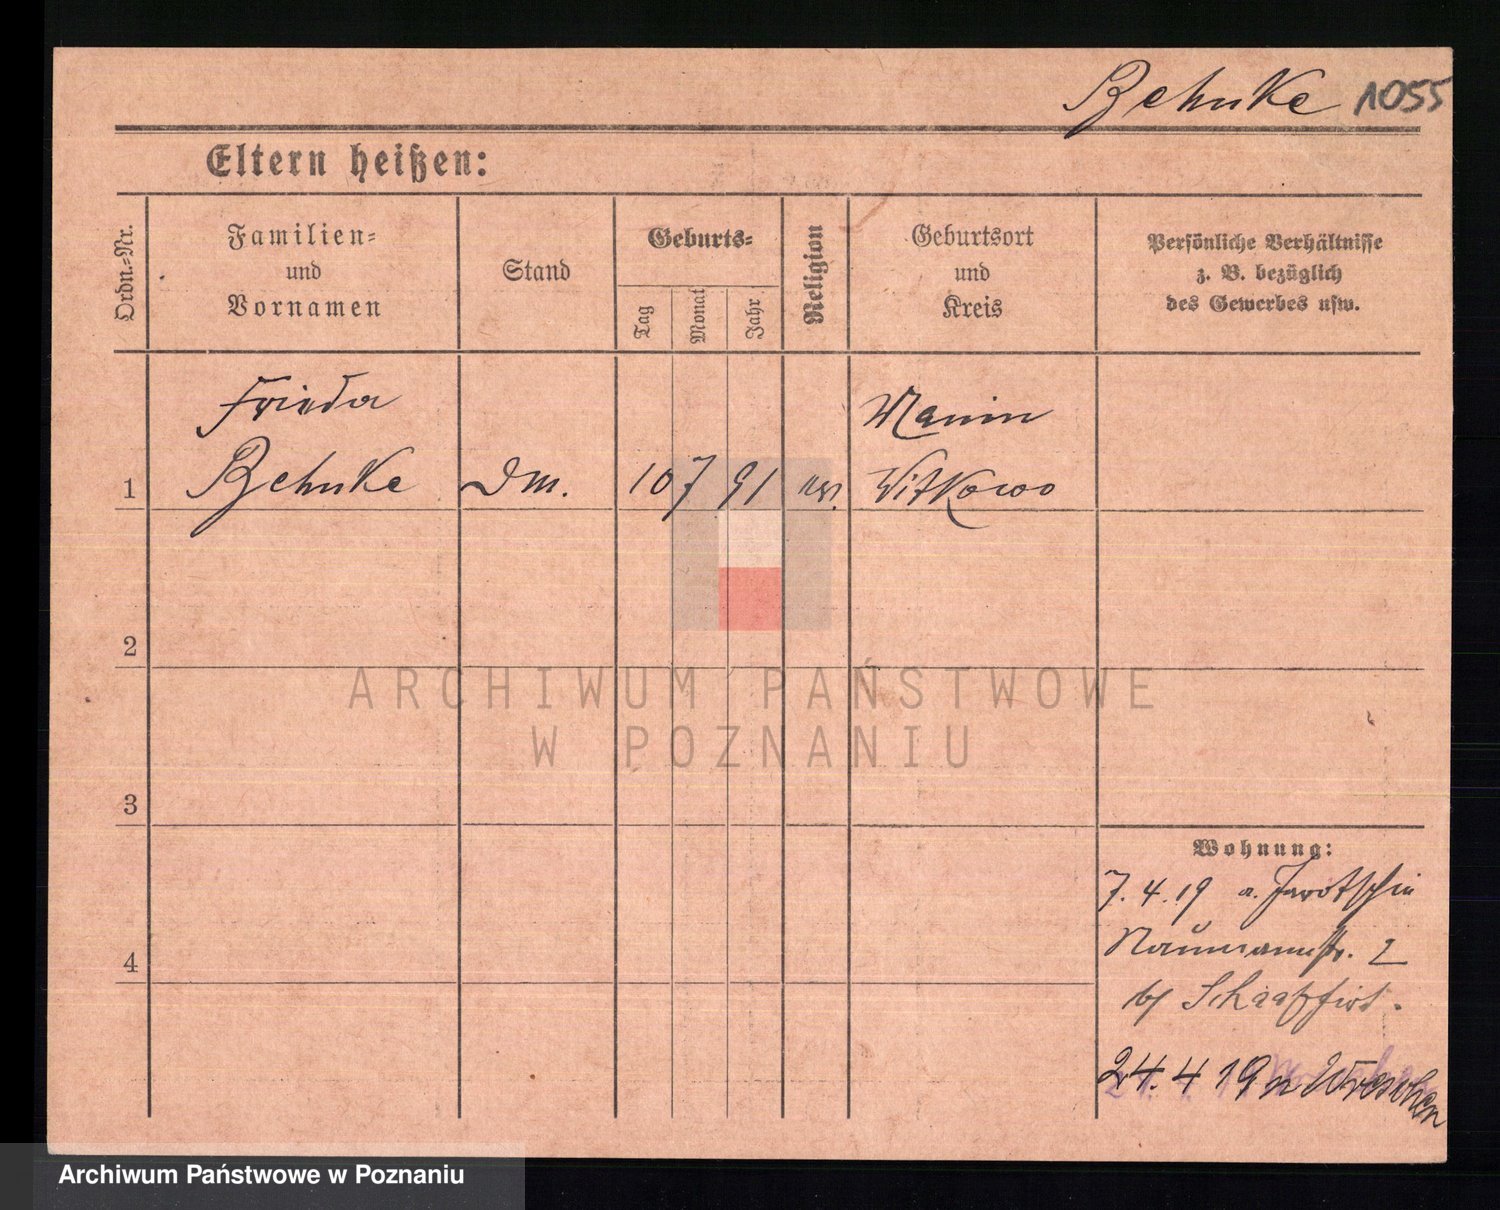 Behnke 1055
Eltern heißen:
Ordn.-Nr.
Familien-
und
Vornamen
Stand
Geburts-
Tag
Monat
Jahr
Religion
Geburtsort
und
Kreis
Persönliche Verhältnisse
z. B. bezüglich
des Gewerbes usw.
Frieda
Mamin
1 Behnke 10 7 91 Witkowo
2
ARCHIWUM PAŃSTWOWE
W POZNANIU
3
Wohnung:
7. 4. 19 a. Jarotschin
Naumannstr. 2
4
24. 4 19 n Wreschen
Archiwum Państwowe w Poznaniu